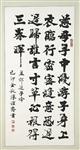 慈母手中線游子身上
衣臨行密密縫意恐遲
遲歸誰言寸草心報得
三春暉